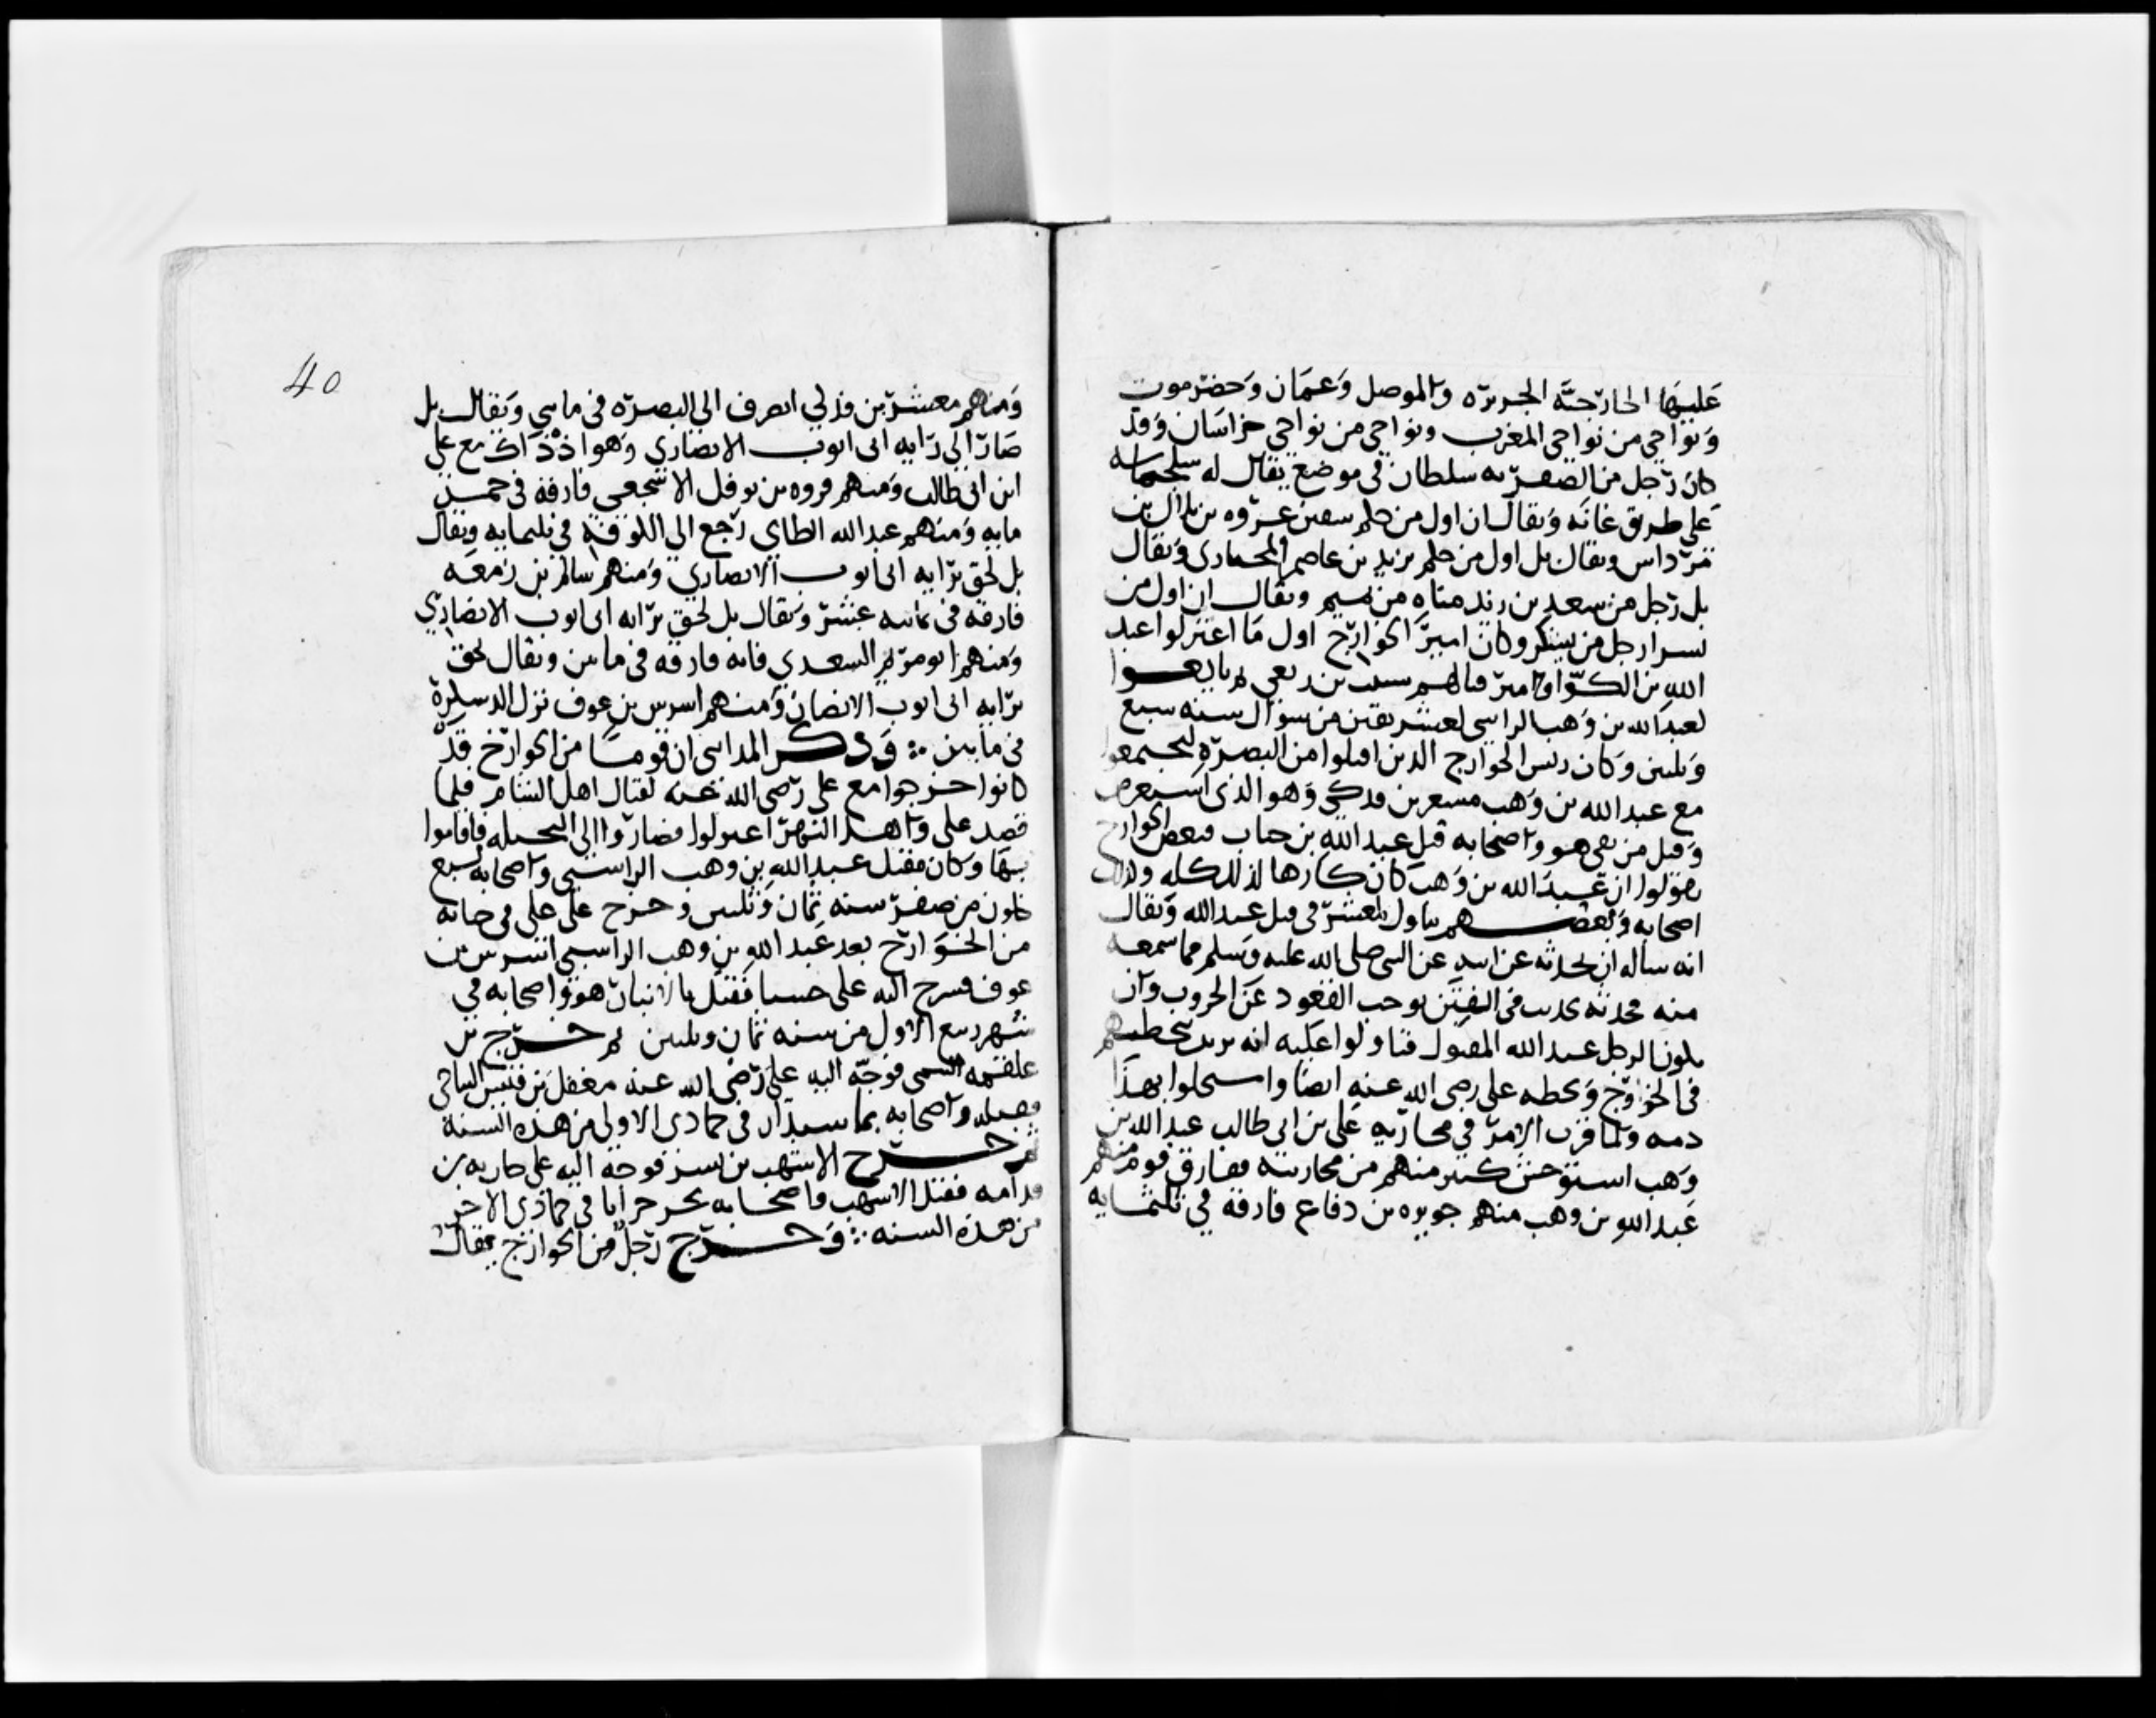 عليها الخارجية الجزيره والموصل وعمان وحضرموت
ونواحي من نواحي المغرب ونواحي من نواحي خراسان وقد
كان رجل من الصفريه سلطان في موضع يقال له سجلماسه
على طريق غانه ويقال ان اول من حكم بصفين عروه بن بلال بن
مرداس ويقال بل اول من حكم يزيد بن عاصم المحاربي ويقال
بل رجل من سعد بن زيد مناه من تميم ويقال ان اول من
تشرا رجل من يشكر وكان امير الخوارج اول ما اعتزلوا عبد
الله بن الكوا وامير قتالهم شبث بن ربعي ثم بايعوا
لعبد الله بن وهب الراسبي لعشر بقين من شوال سنه سبع
وثلثين وكان رئيس الخوارج الذين اقبلوا من البصرة ليجتمعوا
مع عبد الله بن وهب مسعر بن فدكي وهو الذي استعرض
وقتل من لقي هو واصحابه قتل عبد الله بن خباب فبعض الخوارج
يقولوا ان عبد الله بن وهب كان كارها لذلك كله وكذلك
اصحابه وبعضهم يتاول لمعشر في قتل عبد الله ويقال
انه ساله ان يحدثه عن ابيه عن النبي صلى الله عليه وسلم مما سمعه
منه فحدثه بحديث في الفتن يوجب القعود عن الحروب وان
يكون الرجل عبد الله المقتول فتاولوا عليه انه يريد تخطيهم
في الخروج وتخطه على رضي الله عنه ايضا واستحلوا بهذا
دمه ولما قرب الامر في محاربه على بن ابي طالب عبد الله بن
وهب استوحش كثير منهم من محاربته ففارق قوم منهم
عبد الله بن وهب منهم جويره بن دفاع فارقه في ثلثمايه
40
ومنهم معشر بن فدلي انصرف الي البصره في مايتي ويقال بل
صار الى رايه ابي ايوب الانصاري وهو اذ ذاك مع علي
ابن ابي طالب ومنهم فروه بن نوفل الاشجعي فارقه في خمس
مايه ومنهم عبد الله الطاي رجع الى الكوفة في ثلثمايه ويقال
بل لحق برايه ابي ايوب الانصاري ومنهم سالم بن زمعه
فارقه في ثمانيه عشر ويقال بل لحق برايه ابي ايوب الانصاري
ومنهم ابو مريم السعدي فانه فارقه في مايتين ويقال لحق
برايه ابي ايوب الانصاري ومنهم اشرس بن عوف نزل الدسكرة
في مايتين وذكر المدايني ان قوما من الخوارج قد
كانوا خرجوا مع علي رضي الله عنه لقتال اهل الشام فلما
قصد علي واهل النهر اعتزلوا فصاروا الى النخيله فاقاموا
بها وكان مقتل عبد الله بن وهب الراسبي واصحابه لسبع
خلون من صفر سنه ثمان وثلثين وخرج على علي في حياته
من الخوارج بعد عبد الله بن وهب الراسبي اشرس بن
عوف فسرح اليه علي جيشا فقتل بالانبار هو واصحابه في
شهر ربيع الاول من سنه ثمان وثلثين ثم خرج بن
علقمه التيمى فوجه اليه علي رضي الله عنه معقل بن قيس الرياحي
فقتله واصحابه بماسبذان في جمادى الاولى من هذه السنة
ثم خرج الاشهب بن بشر فوجه اليه علي جاريه بن
قدامه فقتل الاشهب واصحابه بجرجرايا في جمادى الاخر
من هذه السنه وخرج رجل من الخوارج يقال